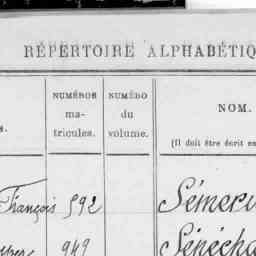 RÉPERTOIRE ALPHABÉTIQ
NUMÉROS
ma-
tricules.
NUMÉRO
du
volume.
NOM.
(Il doit être écrit en
s.
François 592
Sémeri
949
Sénécha